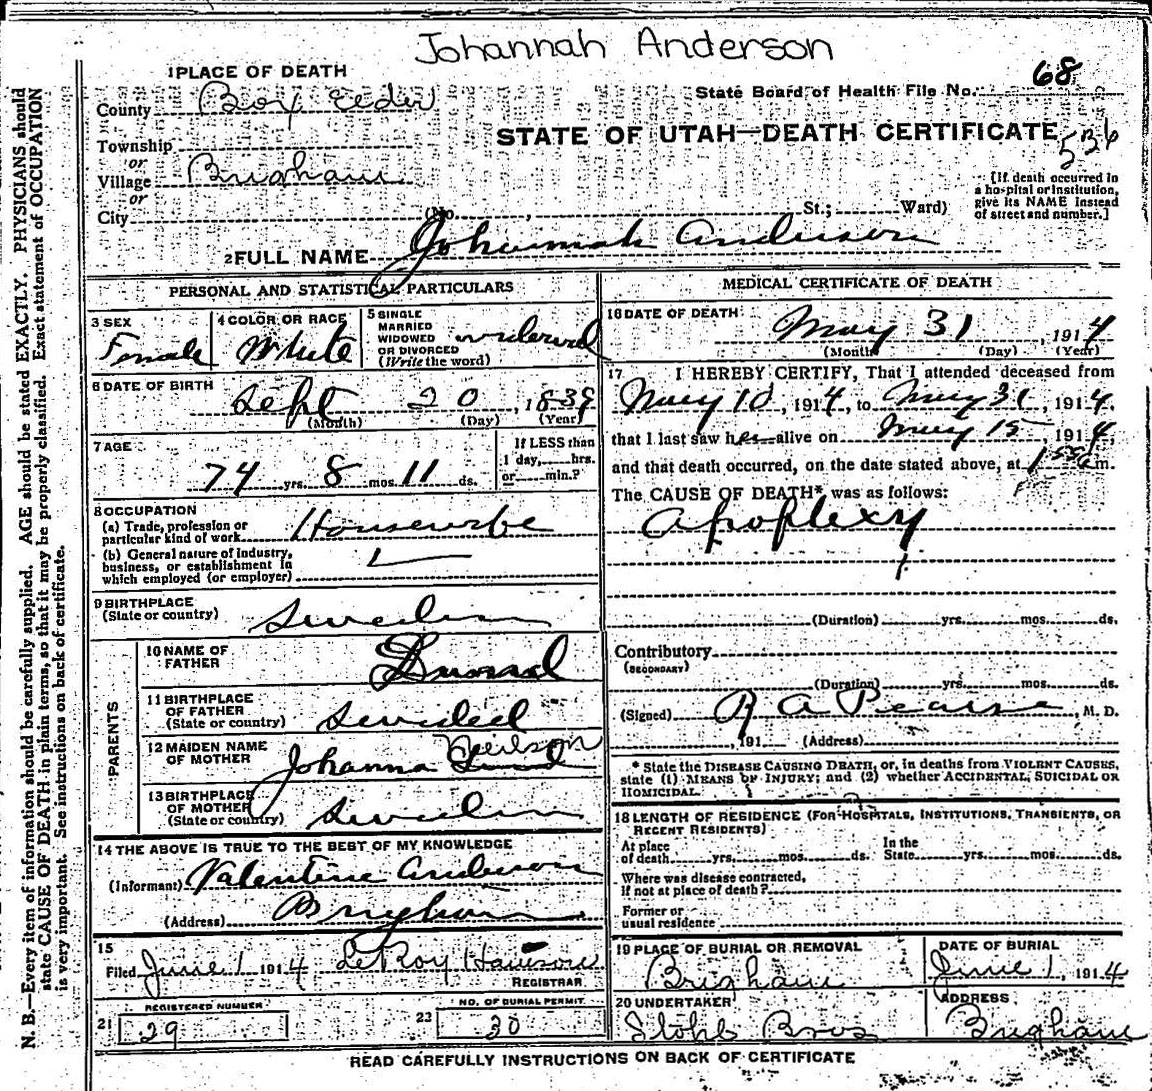 Johannah Anderson
1 PLACE OF DEATH
County Box Elder
State Board of Health File No. 68
STATE OF UTAH—DEATH CERTIFICATE 536
Township
or
Village Brigham
or
City (No. , St.; Ward)
[If death occurred in a hospital or institution, give its NAME instead of street and number.]
2 FULL NAME Johannah Anderson
PERSONAL AND STATISTICAL PARTICULARS
3 SEX Female
4 COLOR OR RACE White
5 SINGLE MARRIED WIDOWED OR DIVORCED (Write the word) widowed
6 DATE OF BIRTH Sept 20, 1839
(Month) (Day) (Year)
7 AGE 74 yrs. 8 mos. 11 ds.
If LESS than 1 day, hrs. or min.?
8 OCCUPATION
(a) Trade, profession or particular kind of work Housewife
(b) General nature of industry, business, or establishment in which employed (or employer)
9 BIRTHPLACE (State or country) Sweden
PARENTS
10 NAME OF FATHER
11 BIRTHPLACE OF FATHER (State or country)
12 MAIDEN NAME OF MOTHER Johanna Neilson
13 BIRTHPLACE OF MOTHER (State or country) Sweden
14 THE ABOVE IS TRUE TO THE BEST OF MY KNOWLEDGE
(Informant) Valentine Anderson
(Address) Brigham
15
Filed June 1 1914 REGISTRAR
REGISTERED NUMBER
21 29
NO. OF BURIAL PERMIT
22 30
MEDICAL CERTIFICATE OF DEATH
16 DATE OF DEATH May 31, 1914
(Month) (Day) (Year)
17 I HEREBY CERTIFY, That I attended deceased from
May 10, 1914, to May 31, 1914,
that I last saw her alive on May 15, 1914,
and that death occurred, on the date stated above, at m.
The CAUSE OF DEATH* was as follows:
Apoplexy
(Duration) yrs. mos. ds.
Contributory
(SECONDARY)
(Duration) yrs. mos. ds.
(Signed) R A Pearse, M. D.
, 191 (Address)
* State the DISEASE CAUSING DEATH, or, in deaths from VIOLENT CAUSES, state (1) MEANS OF INJURY; and (2) whether ACCIDENTAL, SUICIDAL OR HOMICIDAL.
18 LENGTH OF RESIDENCE (FOR HOSPITALS, INSTITUTIONS, TRANSIENTS, OR RECENT RESIDENTS)
At place of death yrs. mos. ds. In the State yrs. mos. ds.
Where was disease contracted, if not at place of death?
Former or usual residence
19 PLACE OF BURIAL OR REMOVAL Brigham
DATE OF BURIAL June 1, 1914
20 UNDERTAKER Stohl Bros
ADDRESS Brigham
READ CAREFULLY INSTRUCTIONS ON BACK OF CERTIFICATE
N. B.—Every item of information should be carefully supplied. AGE should be stated EXACTLY. PHYSICIANS should
state CAUSE OF DEATH in plain terms, so that it may be properly classified. Exact statement of OCCUPATION
is very important. See instructions on back of certificate.